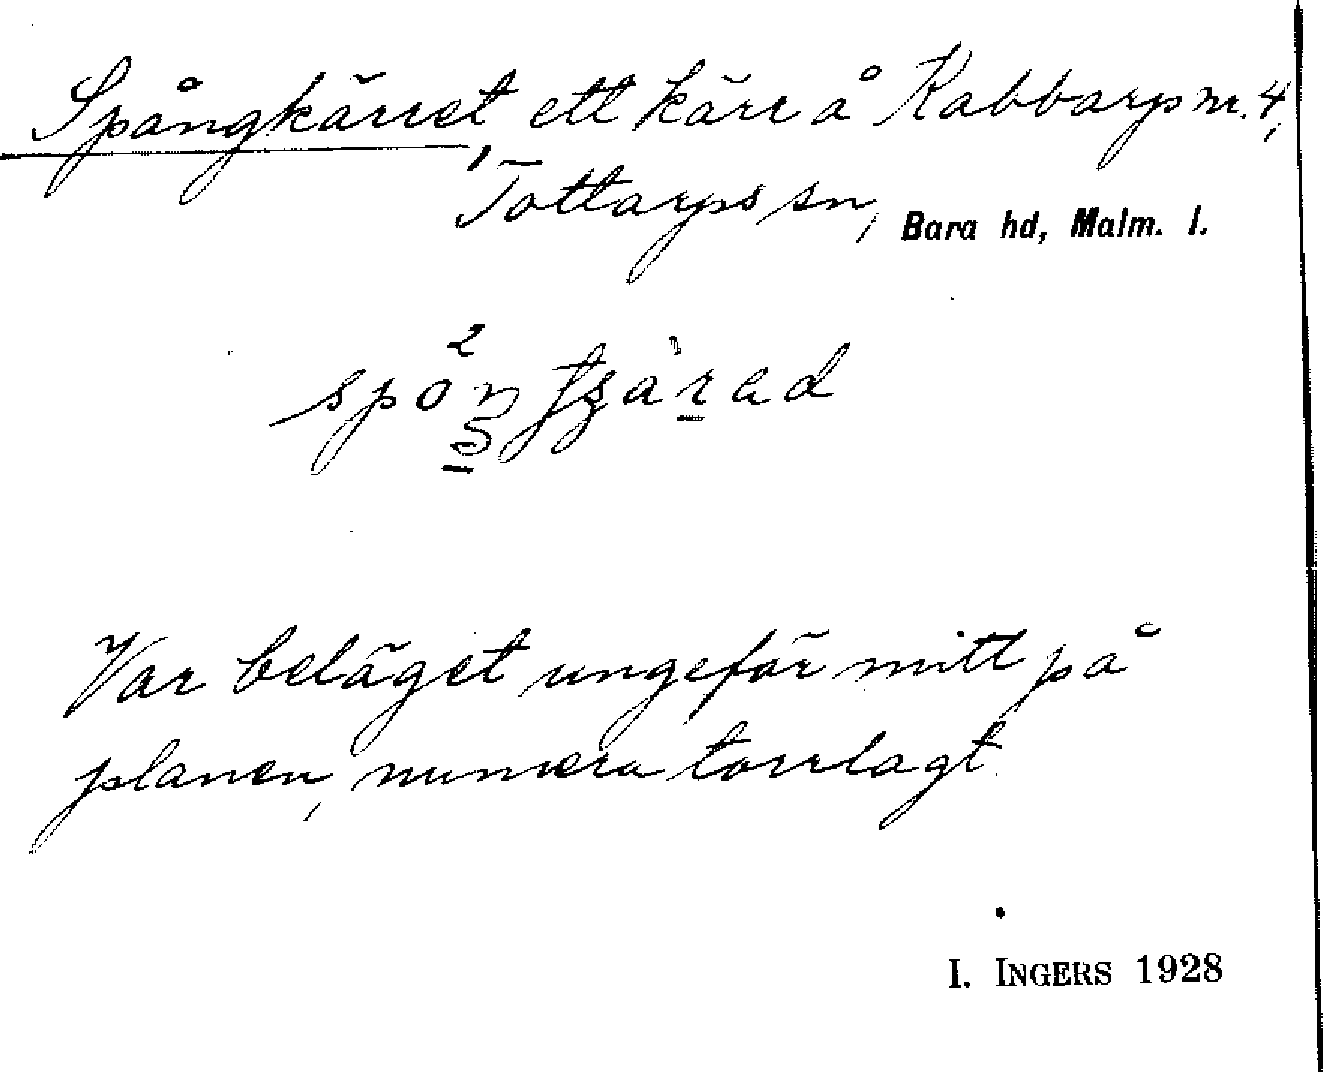 Spångkärret, ett kärr å Kabbarp nr. 4,
Tottarps sn, Bara hd, Malm. l.
Var beläget ungefär mitt på
planen, numera torrlagt.
I. INGERS 1928